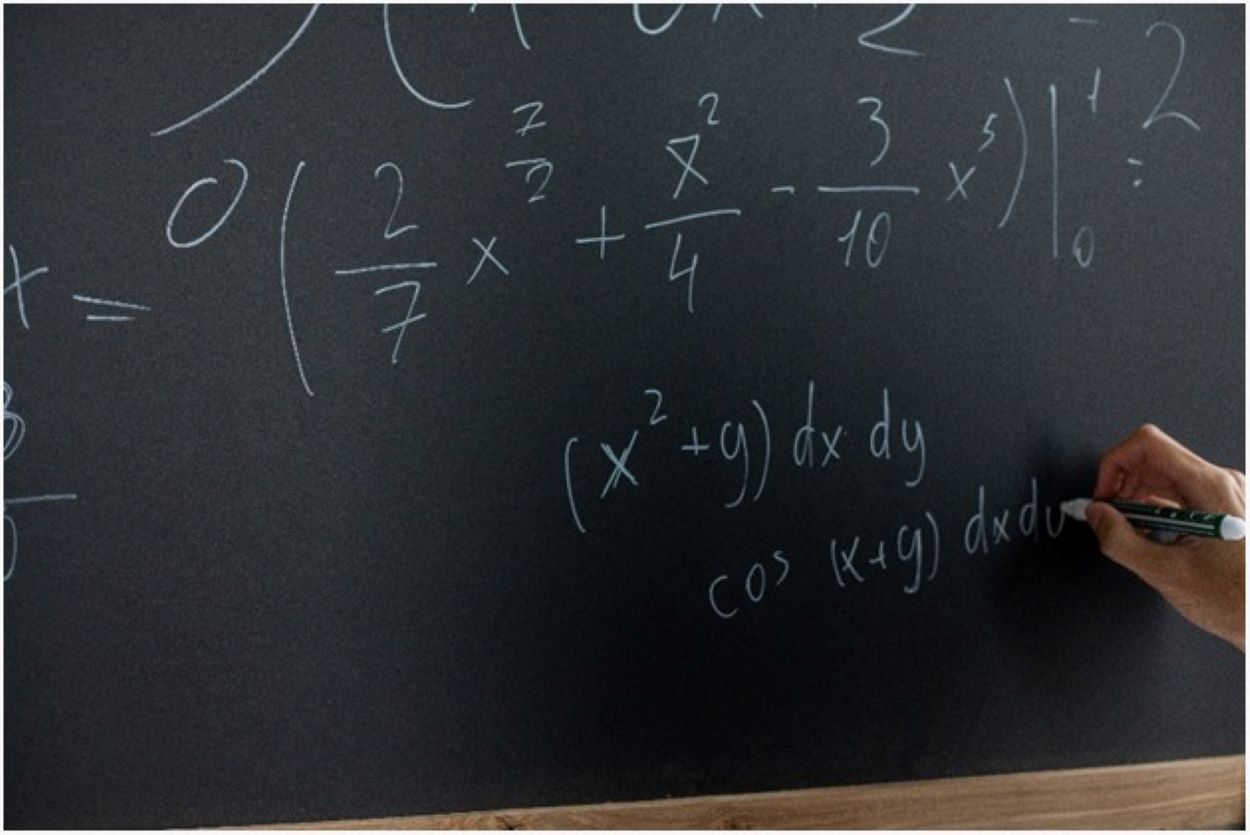 0 ( 2/7 x^7/2 + x^2/4 - 3/10 x^5 ) |_0^1 =
(x^2 + y) dx dy
cos (x+y) dx d